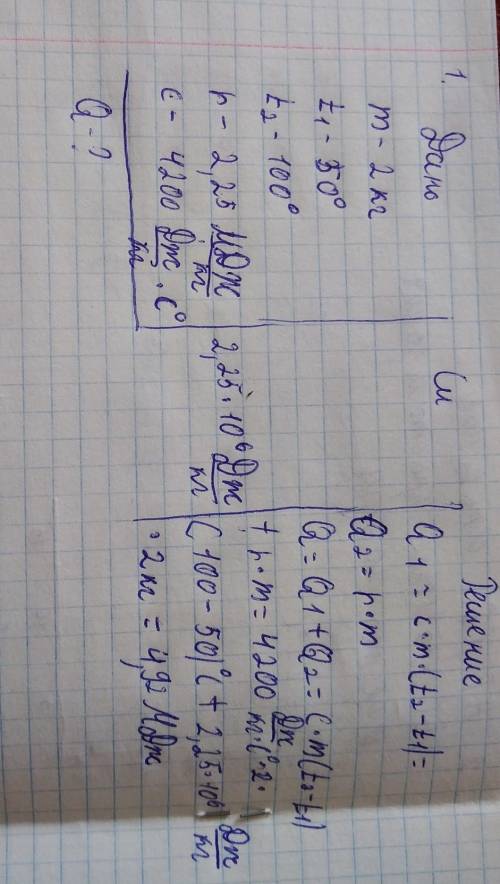 1. Дано
m - 2 кг
t1 - 50°
t2 - 100°
r - 2,25 МДж/кг
c - 4200 Дж/кг · C°
Q - ?
Си
2,25 · 10⁶ Дж/кг
Решение
Q1 = c · m · (t2 - t1) =
Q2 = r · m
Q = Q1 + Q2 = c · m (t2 - t1)
+ r · m = 4200 Дж/кг · C° · 2 ·
(100 - 50)°C + 2,25 · 10⁶ Дж/кг
· 2 кг = 4,92 МДж